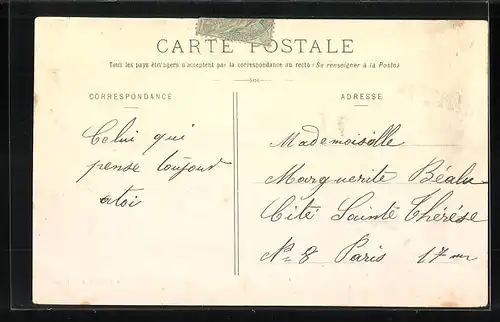 CARTE POSTALE
Tous les pays étrangers n'acceptent pas la correspondance au recto (Se renseigner à la Poste)
CORRESPONDANCE
Celui qui
pense toujour
atoi
ADRESSE
Mademoiselle
Marguerite Béalu
Cité Sainte Thérése
No 8 Paris 17me